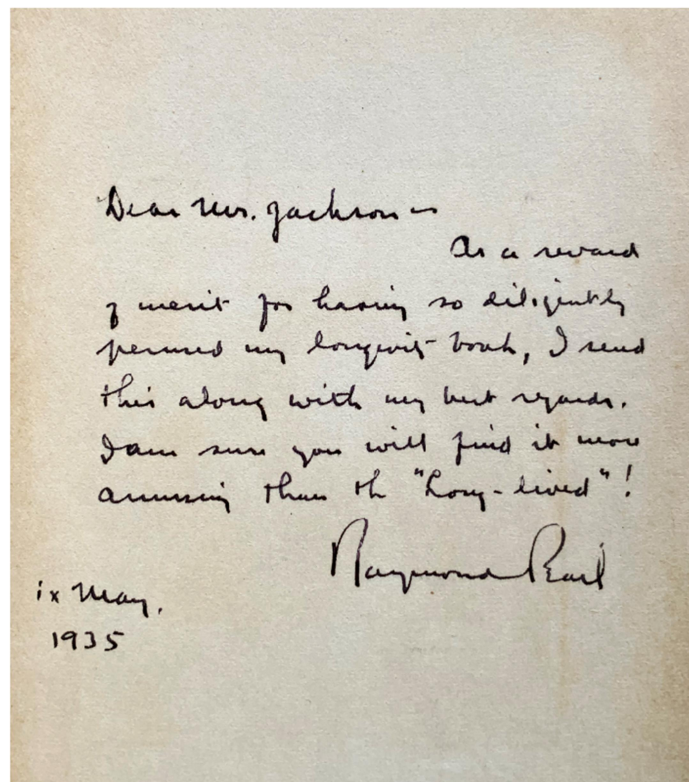 Dear Mrs. Jackson —
As a reward
of merit for having so diligently
perused my longevity book, I send
this along with my best regards.
I am sure you will find it more
amusing than the "Long-lived"!
Raymond Pearl
ix May.
1935